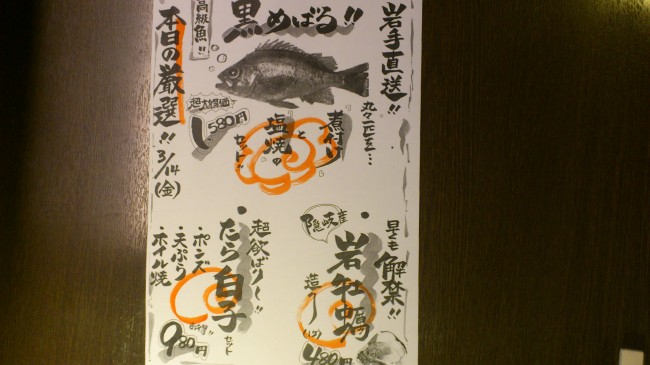 岩手直送!!
丸々一匹を…
黒めばる!!
煮付け
と
塩焼の
セット!!
高級魚!!
超大特価で
1,580円
本日の厳選!! 3/14(金)
早くも解禁!!
隠岐産
・岩牡蠣
造り
480円
・たら白子
セット
・ポンズ
・天ぷら
・ホイル焼
980円